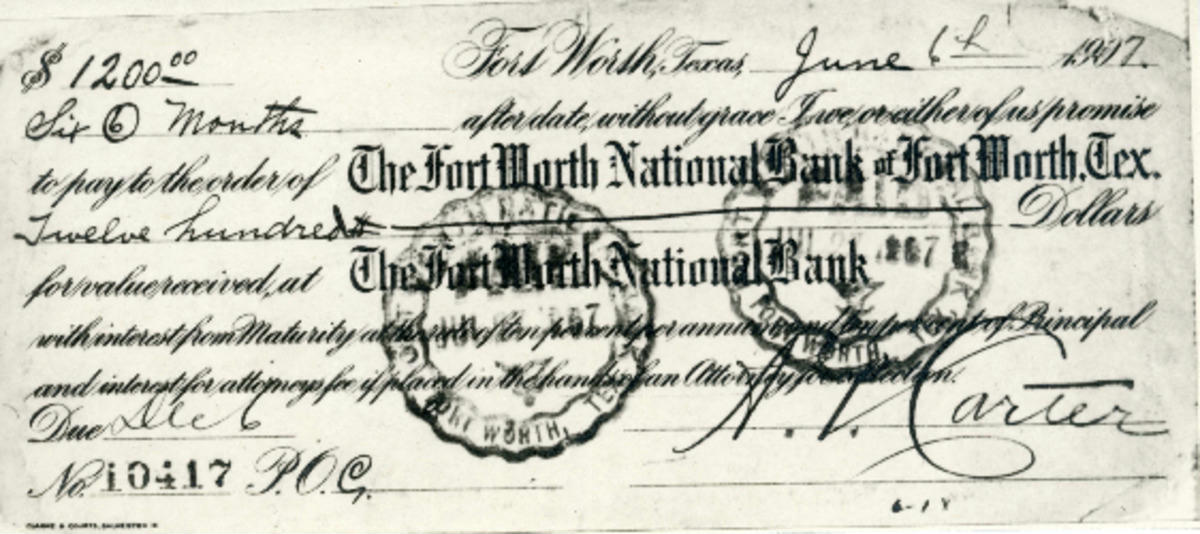 $ 1200.00 Fort Worth, Texas, June 6th 1907.
Six (6) Months after date, without grace I, we, or either of us promise
to pay to the order of The Fort Worth National Bank of Fort Worth, Tex.
Twelve hundred Dollars
for value received, at The Fort Worth National Bank
with interest from Maturity at the rate of ten per cent per annum and ten per cent of Principal
and interest for attorneys fee if placed in the hands of an Attorney for collection.
Due Dec 6
Carter
No. 10417 P.O.
6-18
FORT WORTH, TEX
FORT WORTH, TEX